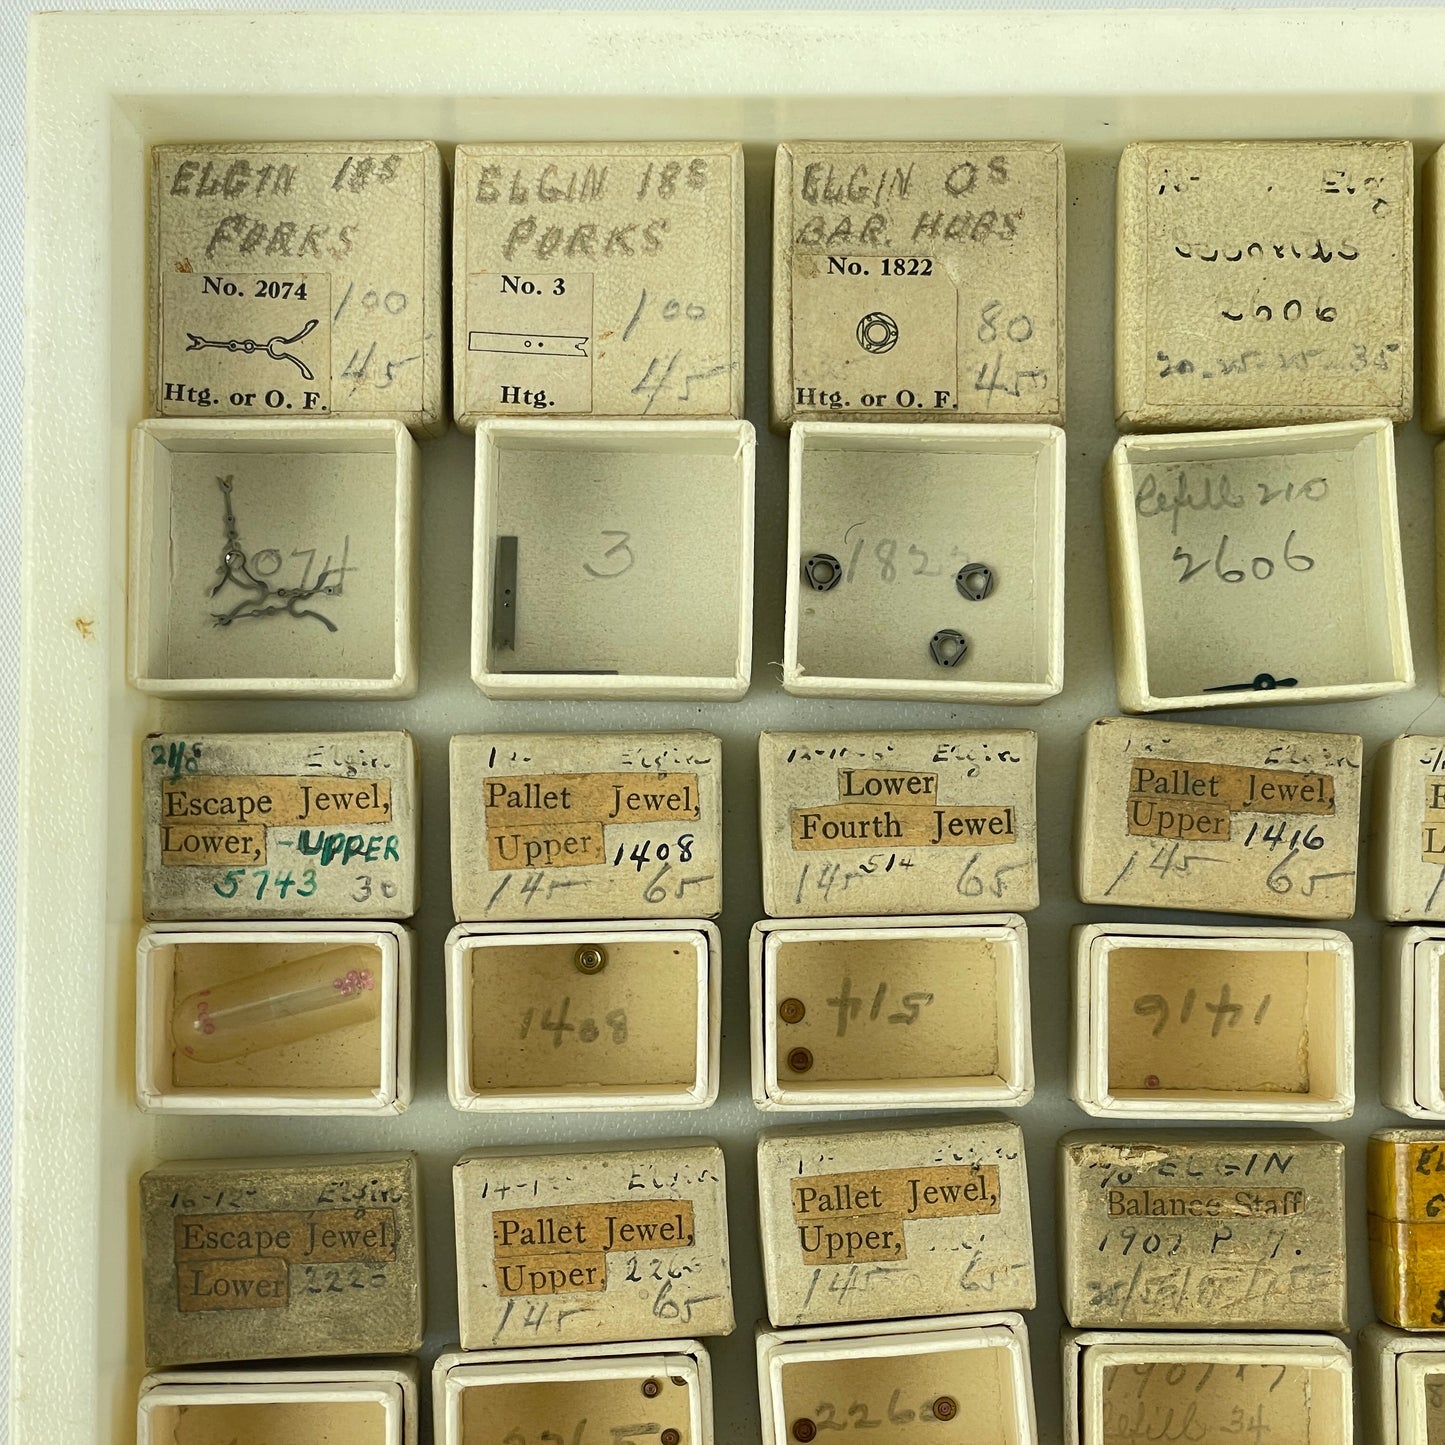 ELGIN 18S
FORKS
No. 2074
100
45
Htg. or O. F.
ELGIN 18S
FORKS
No. 3
100
45
Htg.
ELGIN 0S
BAR. HUBS
No. 1822
80
45
Htg. or O. F.
Elg
2606
20-25-25-35
2074
3
182
Refill 210
2606
Elgin
Escape Jewel,
Lower, -UPPER
5743 30
Elgin
Pallet Jewel,
Upper, 1408
145 65
Elgin
Lower
Fourth Jewel
514
145 65
Elgin
Pallet Jewel,
Upper 1416
145 65
1408
514
1416
16-12- Elgin
Escape Jewel,
Lower 2220
Elgin
Pallet Jewel,
Upper,
145 65
Elgin
Pallet Jewel,
Upper,
145 65
ELGIN
Balance Staff
1907 P 7.
2260
Refill 34